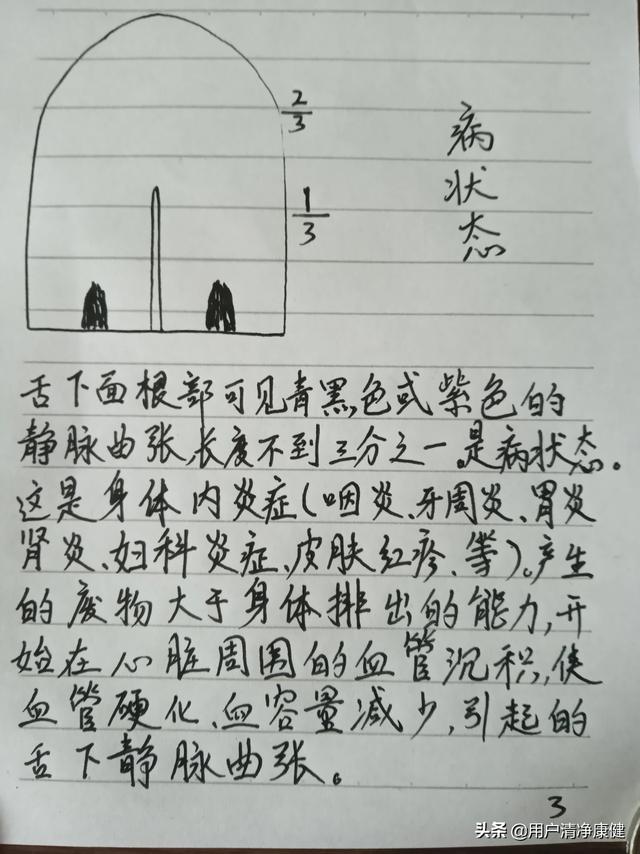 2/3
1/3
病
状
态
舌下面根部可见青黑色或紫色的
静脉曲张,长度不到三分之一.是病状态。
这是身体内炎症(咽炎、牙周炎、胃炎
肾炎、妇科炎症、皮肤红疹、等)。产生
的废物大于身体排出的能力,开
始在心脏周围的血管沉积,使
血管硬化、血容量减少,引起的
舌下静脉曲张。
3
头条 @用户清净康健